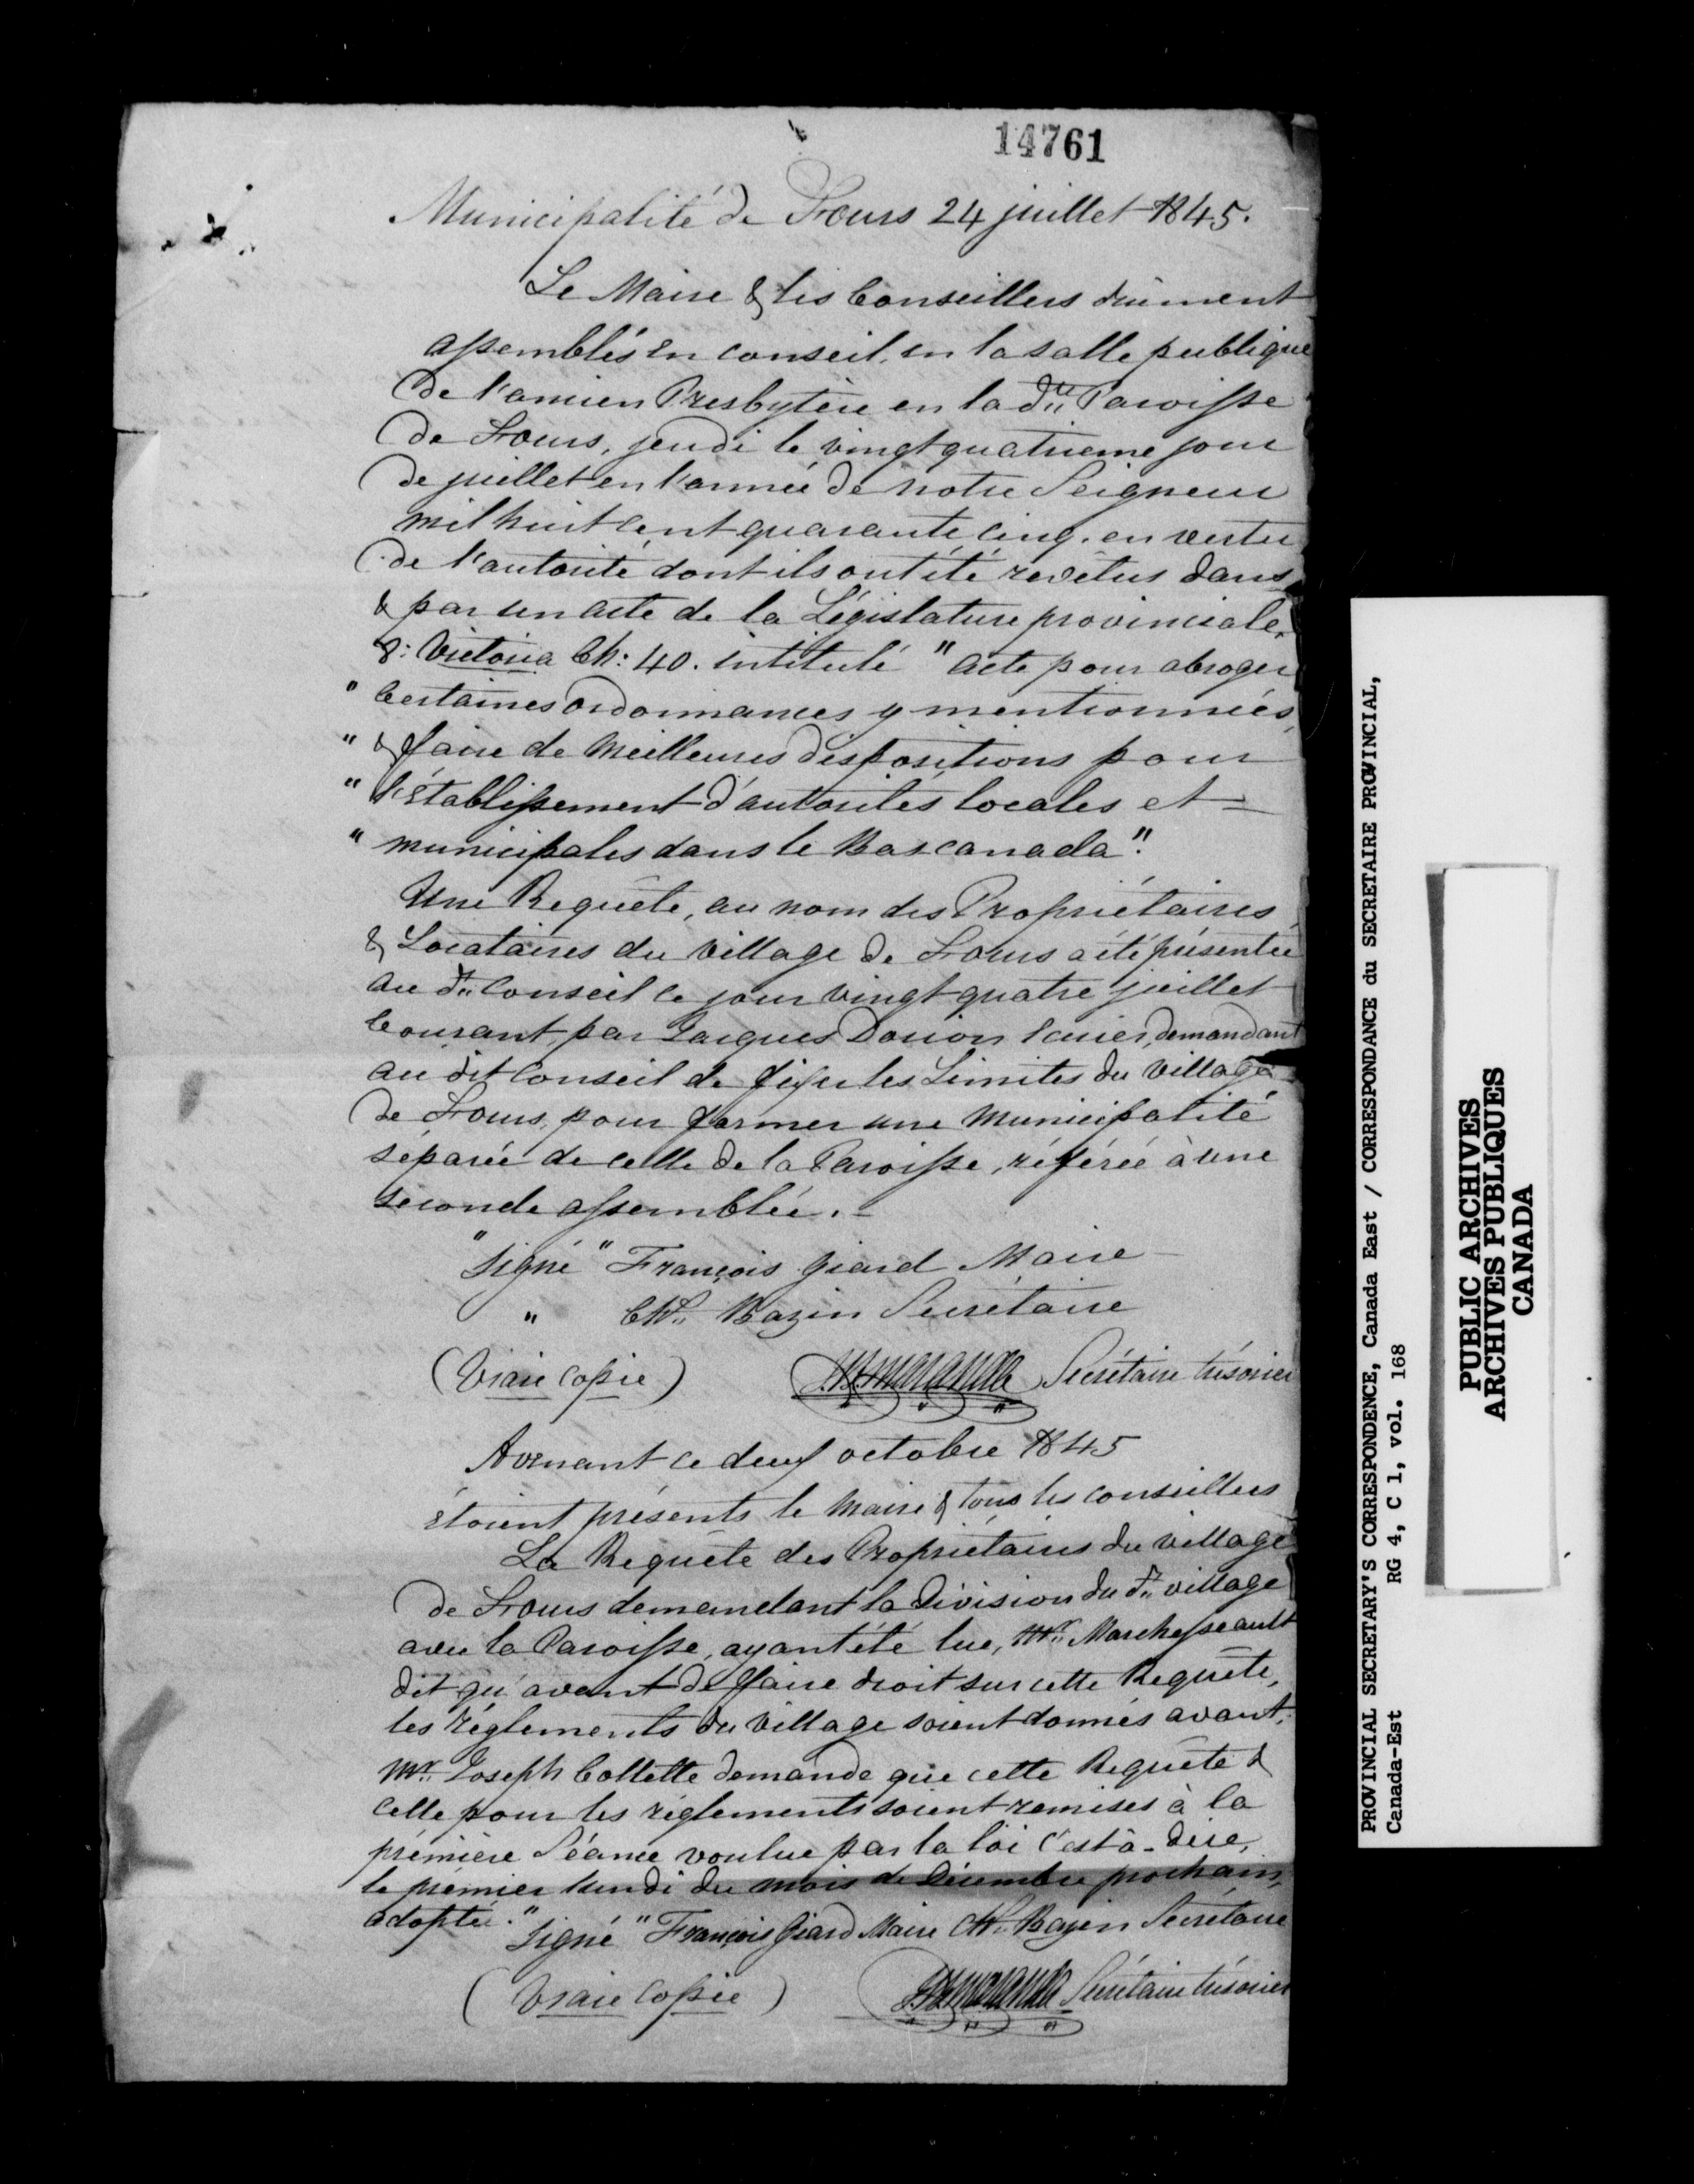 14761
Municipalité de St Ours 24 juillet 1845.
Le Maire & les Conseillers dûment
assemblés en conseil, en la salle publique
de l'ancien Presbytère en la dte Paroisse
de St Ours, jeudi le vingt quatrieme jour
de juillet en l'année de notre Seigneur
mil huit cent quarante cinq. en vertu
de l'autorité dont ils ont été revêtus dans
& par un acte de la Législature provinciale,
8: Victoria Ch: 40. intitulé " acte pour abroger
" Certaines Ordonnances y mentionnées,
" & faire de meilleures dispositions pour
" l'établissement d'autorités locales et
" municipales dans le Bas canada ".
Une Requête, au nom des Propriétaires
& Locataires du village de St Ours a été présentée
au dt Conseil ce jour vingt quatre juillet
Courant, par Jacques Dorion Ecuier, demandant
au dit Conseil de fixer les Limites du Village
de St Ours, pour former une Municipalité
séparée de celle de la Paroisse, référée à une
seconde assemblée. -
" Signé " François Giard Maire
" Chs Bazin Secrétaire
(Vraie Copie) Secrétaire trésorier
Avenant ce deux octobre 1845
étoient présents le Maire & tous les conseillers
La Requête des Propriétaires du village
de St Ours demandant la Division du dt village
avec la Paroisse, ayant été lue, Mr Marchesseault
dit qu'avant de faire droit sur cette Requête,
les réglements du Village soient donnés avant.
Mr Joseph Collette demande que cette Requête &
celle pour les réglements soient remises à la
première Séance voulue par la loi c'est-à-dire,
le premier lundi du mois de Décembre prochain,
adoptée.
" Signé " François Giard Maire Chs Bazin Secrétaire
(Vraie Copie) Secrétaire trésorier
PROVINCIAL SECRETARY'S CORRESPONDENCE, Canada East / CORRESPONDANCE du SECRETAIRE PROVINCIAL,
Canada-Est RG 4, C 1, vol. 168
PUBLIC ARCHIVES
ARCHIVES PUBLIQUES
CANADA